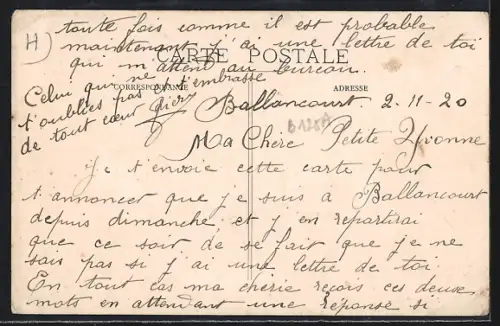 H)
toute fois comme il est probable
maintenant j'ai une lettre de toi
qui m'attend au bureau.
CARTE POSTALE
CORRESPONDANCE
ADRESSE
Celui qui ne
t'oublies pas et t'embrasse
de tout cœur
Ballancourt 2-11-20
Ma Chère Petite Yvonne
je t'envoie cette carte pour
t'annoncer que je suis à Ballancourt
depuis dimanche, et j'en repartirai
que ce soir de se fait que je ne
sais pas si j'ai une lettre de toi.
En tout cas ma chérie reçois ces deux
mots en attendant une réponse si